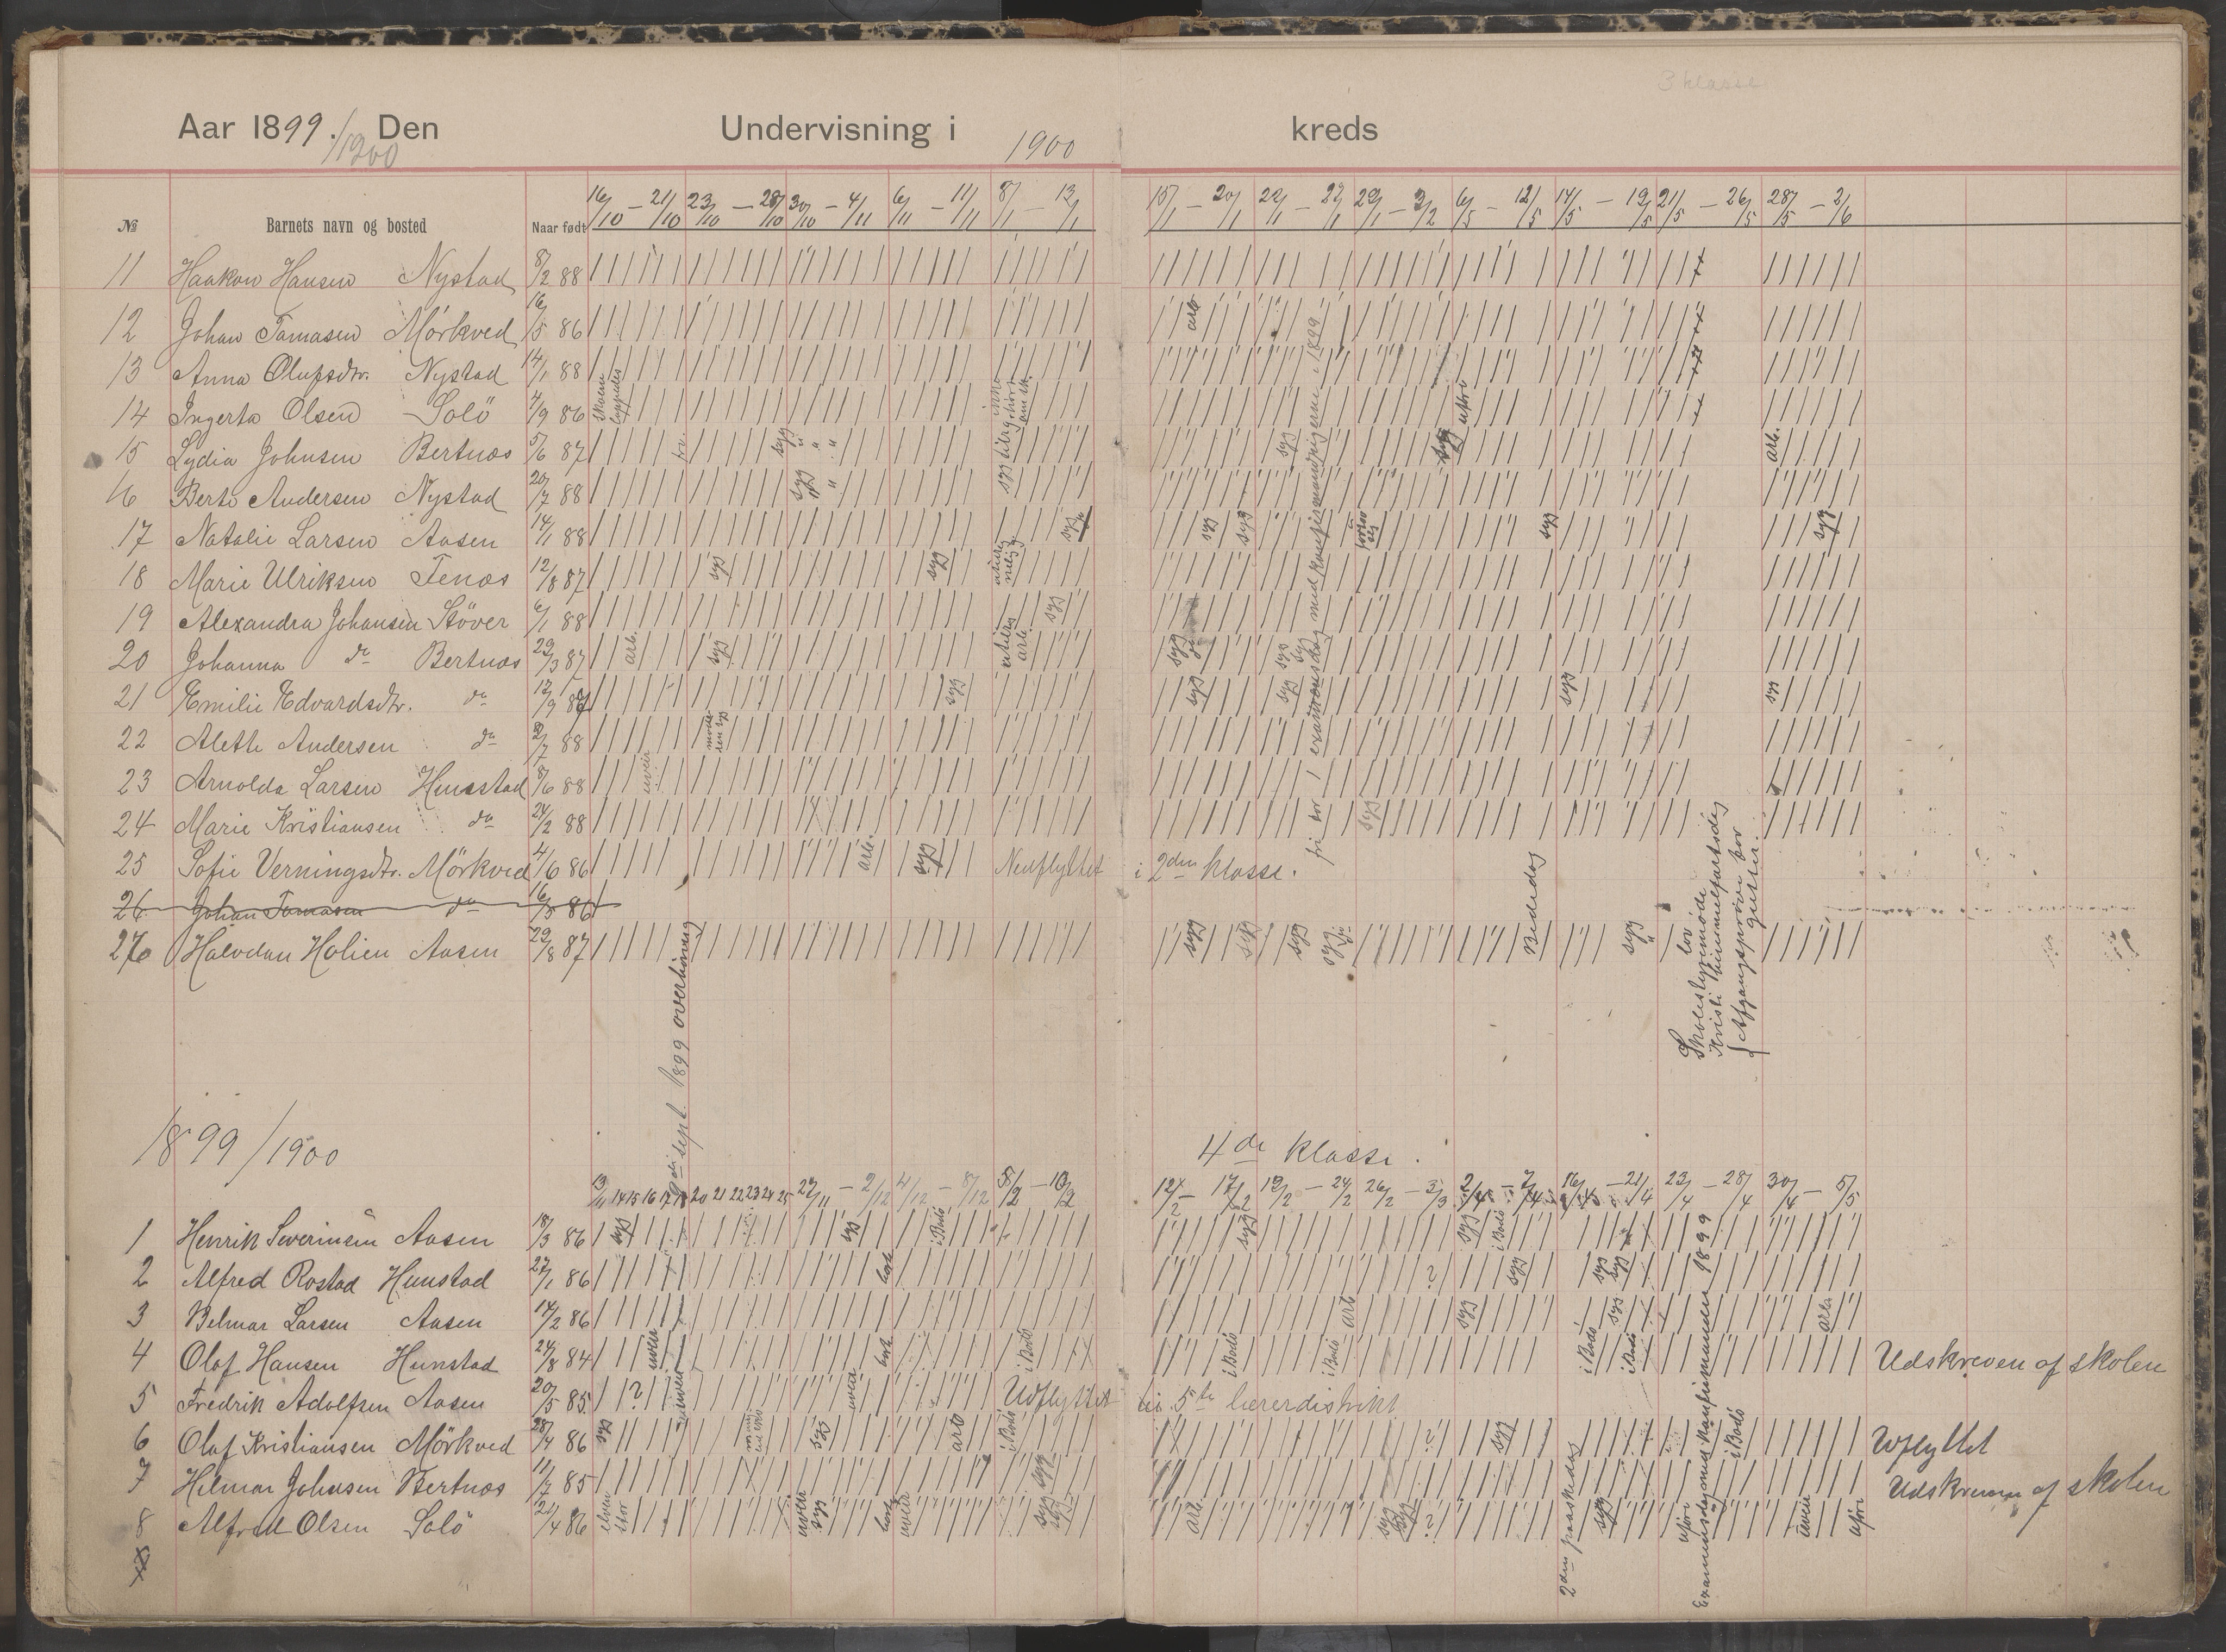 3 klasse
Aar 1899./1900 Den Undervisning i kreds
1900
№ Barnets navn og bosted Naar født 16/10 – 21/10 23/10 – 28/10 30/10 – 4/11 6/11 – 11/11 8/1 – 13/1 15/1 – 20/1 22/1 – 29/1 – 3/2 6/5 – 12/5 14/5 – 19/5 21/5 – 26/5 28/5 – 2/6
11 Haakon Hansen Nystad 8/2 88
12 Johan Tomasen Mörkved 16/5 86 arb
13 Anna Olufsdtr. Nystad 14/1 88
14 Ingerta Olsen Solö 4/9 86 uföri
15 Lydia Johnsen Bertnæs 5/6 87 syg " " " syg syg arb.
16 Berte Andersen Nystad 20/7 88 syg syg " syg
17 Natalie Larsen Aasen 14/1 88 syg syg syg syg syg
18 Marie Ulriksen Fenæs 12/8 87 syg syg
19 Alexandra Johansen Stöver 6/1 88 syg
20 Johanna do Bertnæs 29/3 87 arb. syg arb. syg syg syg
21 Emilie Edvardsdtr. do 12/9 87 syg syg syg syg syg
22 Alette Andersen do 2/7 88
23 Arnolda Larsen Hunstad 8/6 88 uveir
24 Marie Kristiansen do 24/2 88 syg
25 Sofie Verningsdtr. Mörkved 4/6 86 arb. syg Nedflyttet i 2den klasse.
26 Johan Tomasen do 16/5 86
276 Halvdan Holien Aasen 29/8 87 syg syg syg syg syg "
fri for 1 examensdag med konfirmandpigerne i 1899
Bededag
lov
Skolestyrimöde
Kristi himmelfartsdag
Afgangspröve for
gutter.
9di sept. 1899 overhöring
1899/1900 4de klasse.
13/11 14 15 16 17 18 20 21 22 23 24 25 27/11 – 2/12 4/12 – 8/12 5/2 – 10/2 12/2 – 17/2 19/2 – 24/2 26/2 – 3/3 2/4 – 7/4 16/4 – 21/4 23/4 – 28/4 30/4 – 5/5
1 Henrik Severinsen Aasen 18/3 86 syg syg i Bodö syg syg i Bodö
2 Alfred Rostad Hunstad 27/1 86 bort ? syg syg syg
3 Belmar Larsen Aasen 14/2 86 arb syg syg arb
4 Olaf Hansen Hunstad 24/8 84 uveir bort i Bodö i Bodö i Bodö i Bodö i Bodö Udskreven af skolen
5 Fredrik Adolfsen Aasen 20/5 85 ? uveir uveir Udflyttet til 5te lærerdistrikt
6 Olaf Kristiansen Mörkved 28/4 86 syg syg arb i Bodö ? syg i Bodö Udflyttet
7 Hilmar Johnsen Bertnæs 11/7 85 syg Udskreven af skolen
8 Alfred Olsen Solö 24/4 86 elven stor uveir syg bort uveir syg syg arb. syg syg ? syg uföri uveir uföri
2den paaskedag
Examensdag med konfirmanden 1899